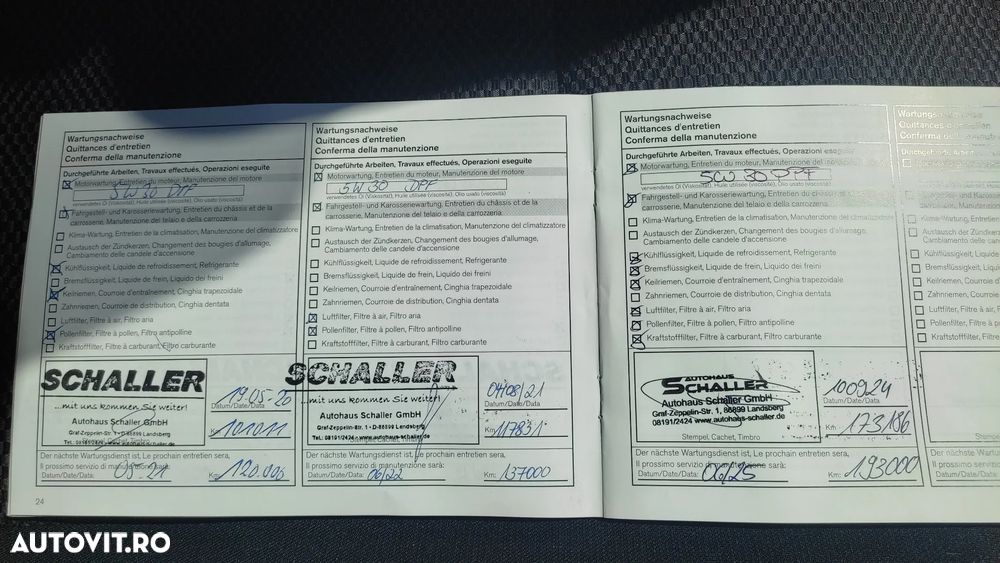 Wartungsnachweise
Quittances d'entretien
Conferma della manutenzione
Durchgeführte Arbeiten, Travaux effectués, Operazioni eseguite
Motorwartung, Entretien du moteur, Manutenzione del motore
5W30 DPF
verwendetes Öl (Viskosität), Huile utilisée (viscosité), Olio usato (viscosità)
Fahrgestell- und Karosseriewartung, Entretien du châssis et de la
carrosserie, Manutenzione del telaio e della carrozzeria
Klima-Wartung, Entretien de la climatisation, Manutenzione del climatizzatore
Austausch der Zündkerzen, Changement des bougies d'allumage,
Cambiamento delle candele d'accensione
Kühlflüssigkeit, Liquide de refroidissement, Refrigerante
Bremsflüssigkeit, Liquide de frein, Liquido dei freini
Keilriemen, Courroie d'entraînement, Cinghia trapezoidale
Zahnriemen, Courroie de distribution, Cinghia dentata
Luftfilter, Filtre à air, Filtro aria
Pollenfilter, Filtre à pollen, Filtro antipolline
Kraftstofffilter, Filtre à carburant, Filtro carburante
SCHALLER
...mit uns kommen Sie weiter!
Autohaus Schaller GmbH
Graf-Zeppelin-Str. 1 - D-86899 Landsberg
Tel.: 08191/2424 - www.autohaus-schaller.de
19.05.20
Datum/Date/Data:
Km: 101011
Der nächste Wartungsdienst ist, Le prochain entretien sera,
Il prossimo servizio di manutenzione sarà:
Datum/Date/Data: 05.21
Km: 120.000
24
Wartungsnachweise
Quittances d'entretien
Conferma della manutenzione
Durchgeführte Arbeiten, Travaux effectués, Operazioni eseguite
Motorwartung, Entretien du moteur, Manutenzione del motore
5W30 DPF
verwendetes Öl (Viskosität), Huile utilisée (viscosité), Olio usato (viscosità)
Fahrgestell- und Karosseriewartung, Entretien du châssis et de la
carrosserie, Manutenzione del telaio e della carrozzeria
Klima-Wartung, Entretien de la climatisation, Manutenzione del climatizzatore
Austausch der Zündkerzen, Changement des bougies d'allumage,
Cambiamento delle candele d'accensione
Kühlflüssigkeit, Liquide de refroidissement, Refrigerante
Bremsflüssigkeit, Liquide de frein, Liquido dei freini
Keilriemen, Courroie d'entraînement, Cinghia trapezoidale
Zahnriemen, Courroie de distribution, Cinghia dentata
Luftfilter, Filtre à air, Filtro aria
Pollenfilter, Filtre à pollen, Filtro antipolline
Kraftstofffilter, Filtre à carburant, Filtro carburante
SCHALLER
...mit uns kommen Sie weiter!
Autohaus Schaller GmbH
Graf-Zeppelin-Str. 1 - D-86899 Landsberg
Tel.: 08191/2424 - www.autohaus-schaller.de
Stempel, Cachet, Timbro
04/08/21
Datum/Date/Data:
Km: 117831
Der nächste Wartungsdienst ist, Le prochain entretien sera,
Il prossimo servizio di manutenzione sarà:
Datum/Date/Data: 06/22
Km: 137000
Wartungsnachweise
Quittances d'entretien
Conferma della manutenzione
Durchgeführte Arbeiten, Travaux effectués, Operazioni eseguite
Motorwartung, Entretien du moteur, Manutenzione del motore
5W30 DPF
verwendetes Öl (Viskosität), Huile utilisée (viscosité), Olio usato (viscosità)
Fahrgestell- und Karosseriewartung, Entretien du châssis et de la
carrosserie, Manutenzione del telaio e della carrozzeria
Klima-Wartung, Entretien de la climatisation, Manutenzione del climatizzatore
Austausch der Zündkerzen, Changement des bougies d'allumage,
Cambiamento delle candele d'accensione
Kühlflüssigkeit, Liquide de refroidissement, Refrigerante
Bremsflüssigkeit, Liquide de frein, Liquido dei freini
Keilriemen, Courroie d'entraînement, Cinghia trapezoidale
Zahnriemen, Courroie de distribution, Cinghia dentata
Luftfilter, Filtre à air, Filtro aria
Pollenfilter, Filtre à pollen, Filtro antipolline
Kraftstofffilter, Filtre à carburant, Filtro carburante
AUTOHAUS
SCHALLER
Autohaus Schaller GmbH
Graf-Zeppelin-Str. 1, 86899 Landsberg
08191/2424 www.autohaus-schaller.de
Stempel, Cachet, Timbro
100924
Datum/Date/Data:
Km: 173186
Der nächste Wartungsdienst ist, Le prochain entretien sera,
Il prossimo servizio di manutenzione sarà:
Datum/Date/Data: 06/25
Km: 193000
Quittances
Conferma della
AUTOVIT.RO